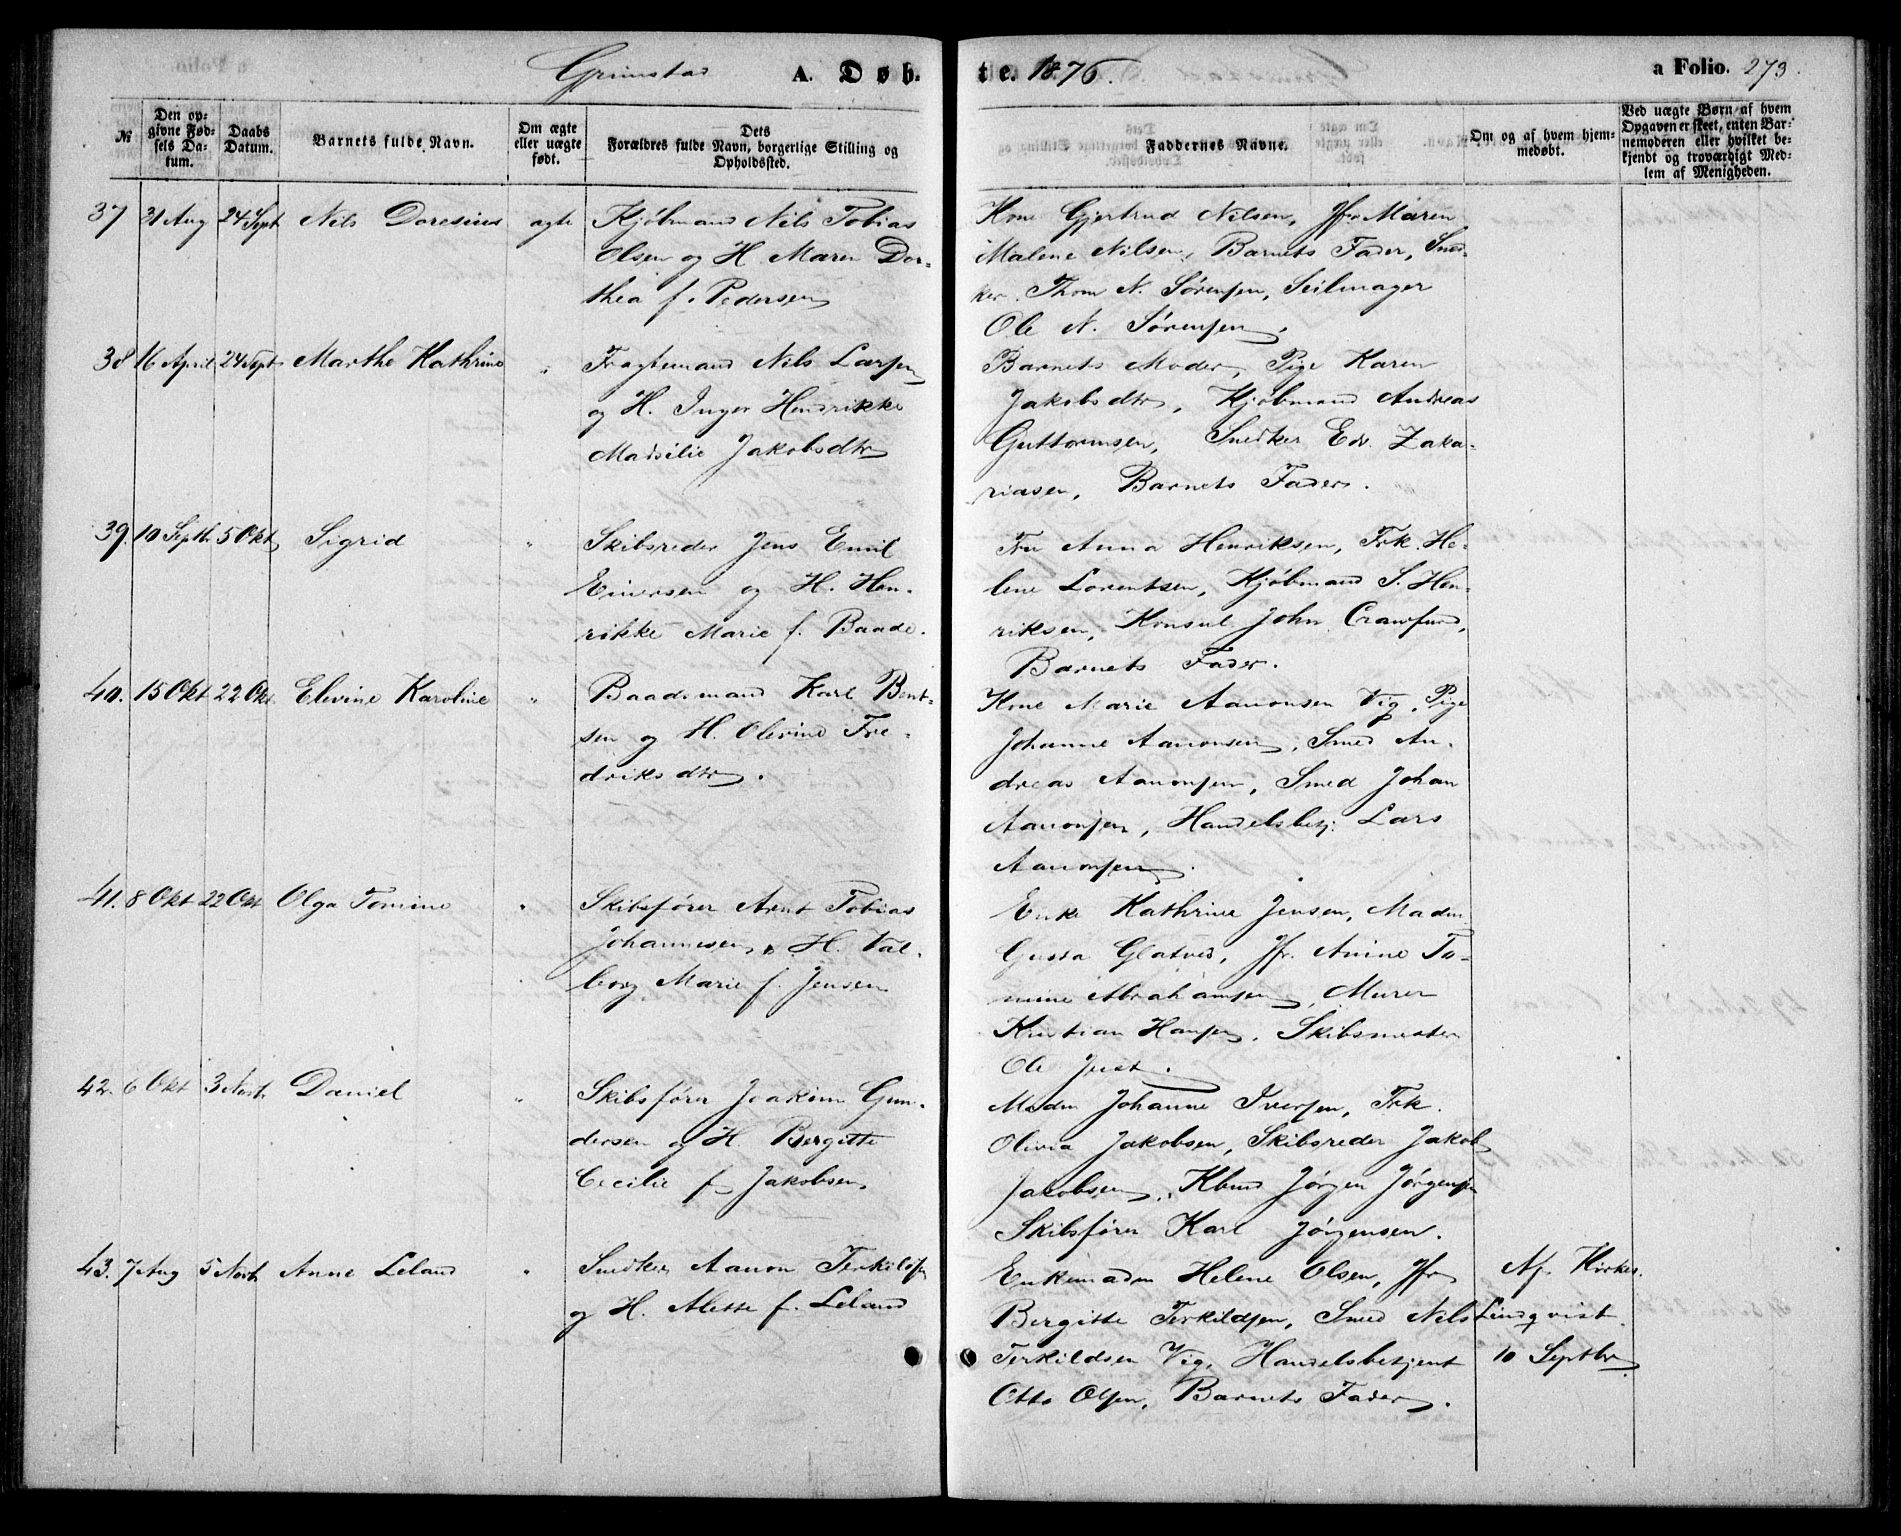 Grimstad A. Døb-
te. 1876.
a Folio. 273.
№
Den op-
givne Fød-
sels Da-
tum.
Daabs
Datum.
Barnets fulde Navn.
Om ægte
eller uægte
født.
Dets
Forældres fulde Navn, borgerlige Stilling og
Opholdssted.
Faddernes Navne.
Om og af hvem hjem-
medøbt.
Ved uægte Børn af hvem
Opgaven er skeet, enten Bar-
nemoderen eller hvilket be-
kjendt og troværdigt Med-
lem af Menigheden.
37 31 Aug 24 Sept Nils Doresius ægte Kjøbmand Nils Tobias
Olsen og H. Maren Dor-
thea f. Pedersen
Kone Gjertrud Nilsen, Jfr Maren
Malene Nilsen, Barnets Fader, Sned-
ker Thom N. Sørensen, Seilmager
Ole N. Sørensen.
38 16 April 24 Sept Marthe Kathrine " Fragtemand Nils Larsen
og H. Inger Henrikke
Madsilie Jakobsdtr
Barnets Moder, Pige Karen
Jakobsdtr, Kjøbmand Andreas
Guttormsen, Snedker Edv. Zaka-
riasen, Barnets Fader.
39. 10 Septb. 5 Okt Sigrid " Skibsreder Jens Emil
Eiversen og H. Hen-
rikke Marie f. Baade.
Fru Anna Henriksen, Frk. He-
lene Lorentsen, Kjøbmand S. Hen-
riksen, Konsul John Crawfurd,
Barnets Fader.
40. 15 Okt 22 Okt Elevine Karoline " Baadsmand Karl Bent-
sen og H. Olevine Fre-
driksdtr.
Kone Marie Aanonsen Vig, Pige
Johanne Aanonsen, Smed An-
dreas Aanonsen, Smed Johan
Aanonsen, Handelsbetj. Lars
Aanonsen.
41. 8 Okt 22 Okt Olga Tomine " Skibsfører Arnt Tobias
Johannesen, H. Val-
borg Marie f. Jensen
Enke Kathrine Jensen, Madm
Gusta Glatved, Jfr. Anine To-
mine Abrahamsen, Murer
Kristian Hansen, Skibsmester
Ole Just.
42. 6 Okt 3 Novb Daniel " Skibsfører Joakim Gun-
dersen og H. Bergitte
Cecilie f. Jakobsen
Madm Johanne Iversen, Frk.
Olivia Jakobsen, Skibsreder Jakob
Jakobsen, Kbmd Jørgen Jørgensen
Skibsfører Karl Jørgensen.
43. 7 Aug 5 Novb Anne Leland " Snedker Aanon Terkildsen
og H. Alette f. Leland
Enkemadm Helene Olsen, Jfr
Bergitte Terkildsen, Smed Nils
Terkildsen Vig, Handelsbetjent
Otto Olsen, Barnets Fader.
Af Kirkes.
Lindqvist
10 Septbr